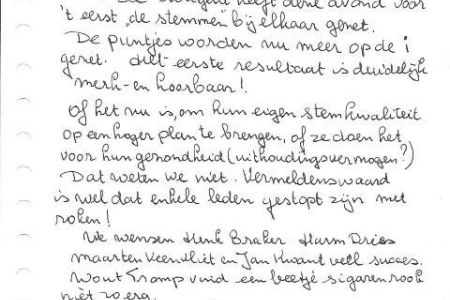 heeft deze avond voor
't eerst "de stemmen" bij elkaar gezet.
De puntjes worden nu meer op de i
gezet. Het eerste resultaat is duidelijk
merk- en hoorbaar!.
Of het nu is, om hun eigen stemkwaliteit
op een hoger plan te brengen, of ze doen het
voor hun gezondheid (uithoudingsvermogen?)
Dat weten we niet. Vermeldenswaard
is wel dat enkele leden gestopt zijn met
roken!
We wensen Henk Braker Harm Dries
maarten Keenvliet en Jan Kwant veel succes.
Wout Tromp vind een beetje sigarenrook
niet zo erg.